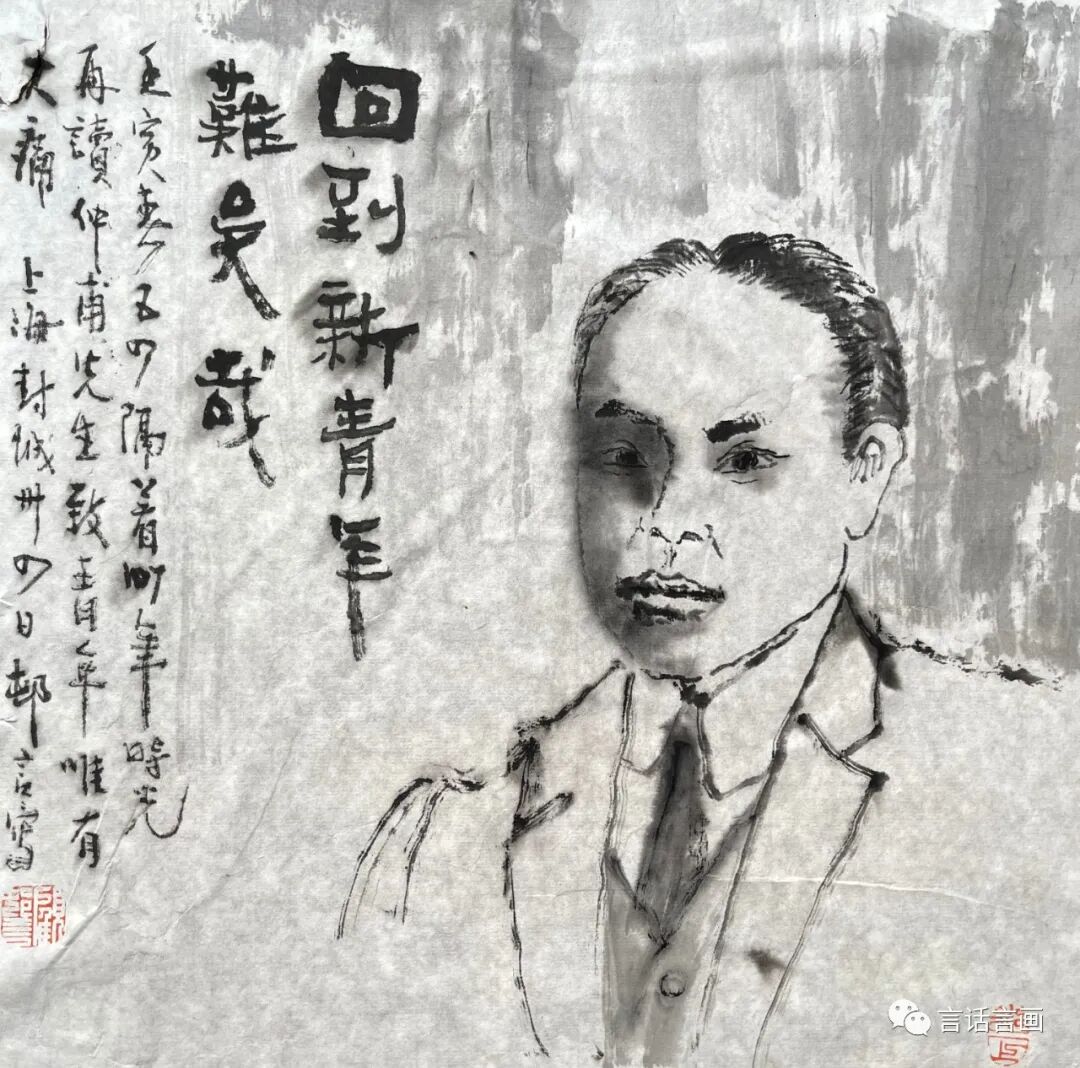 回到新青年
難矣哉
壬寅春五四隔着年時光
再讀仲甫先生致青年唯有
大痛 上海封城卅四日邨言寫
言话言画